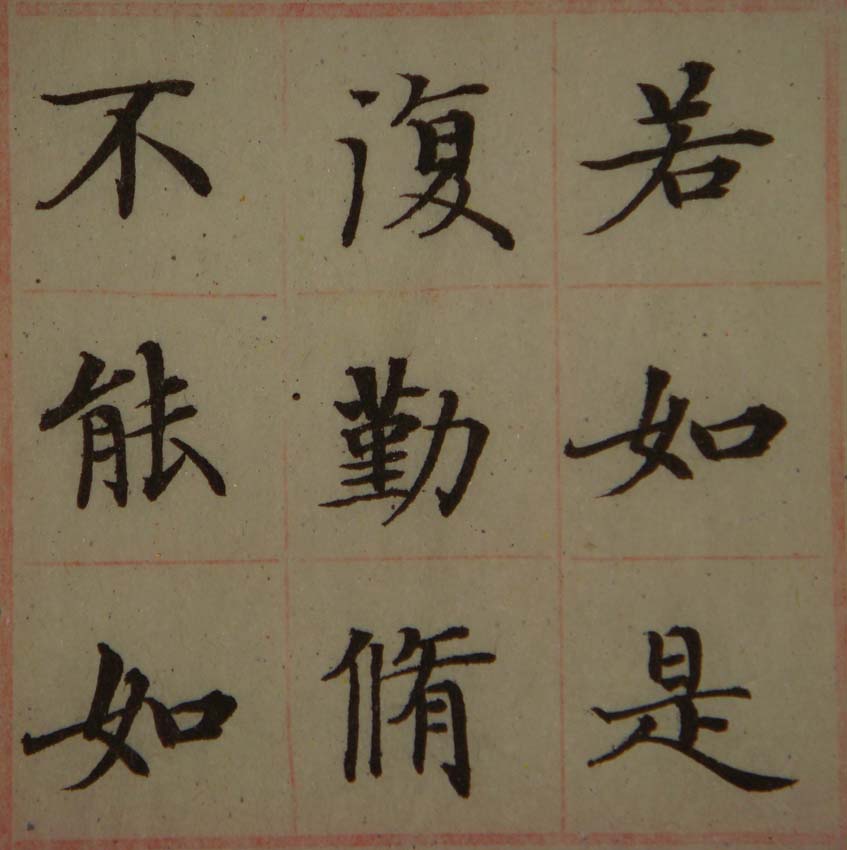 若如是
復勤脩
不能如